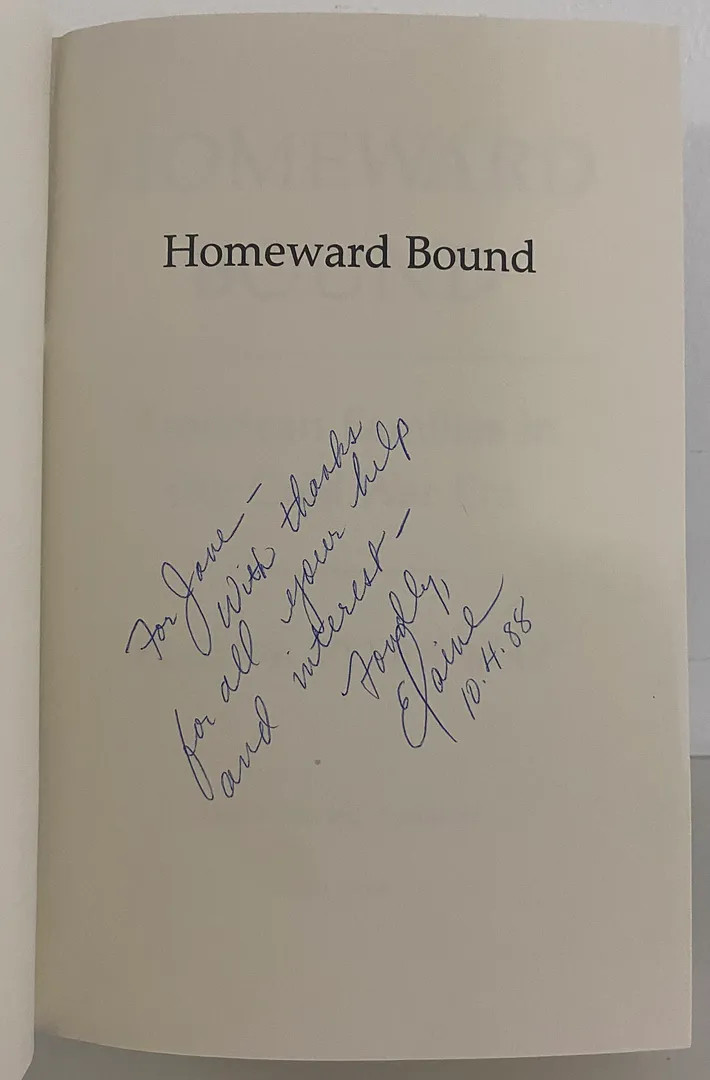 Homeward Bound
For Jane –
With thanks
for all your help
and interest –
Fondly,
Elaine
10.4.88